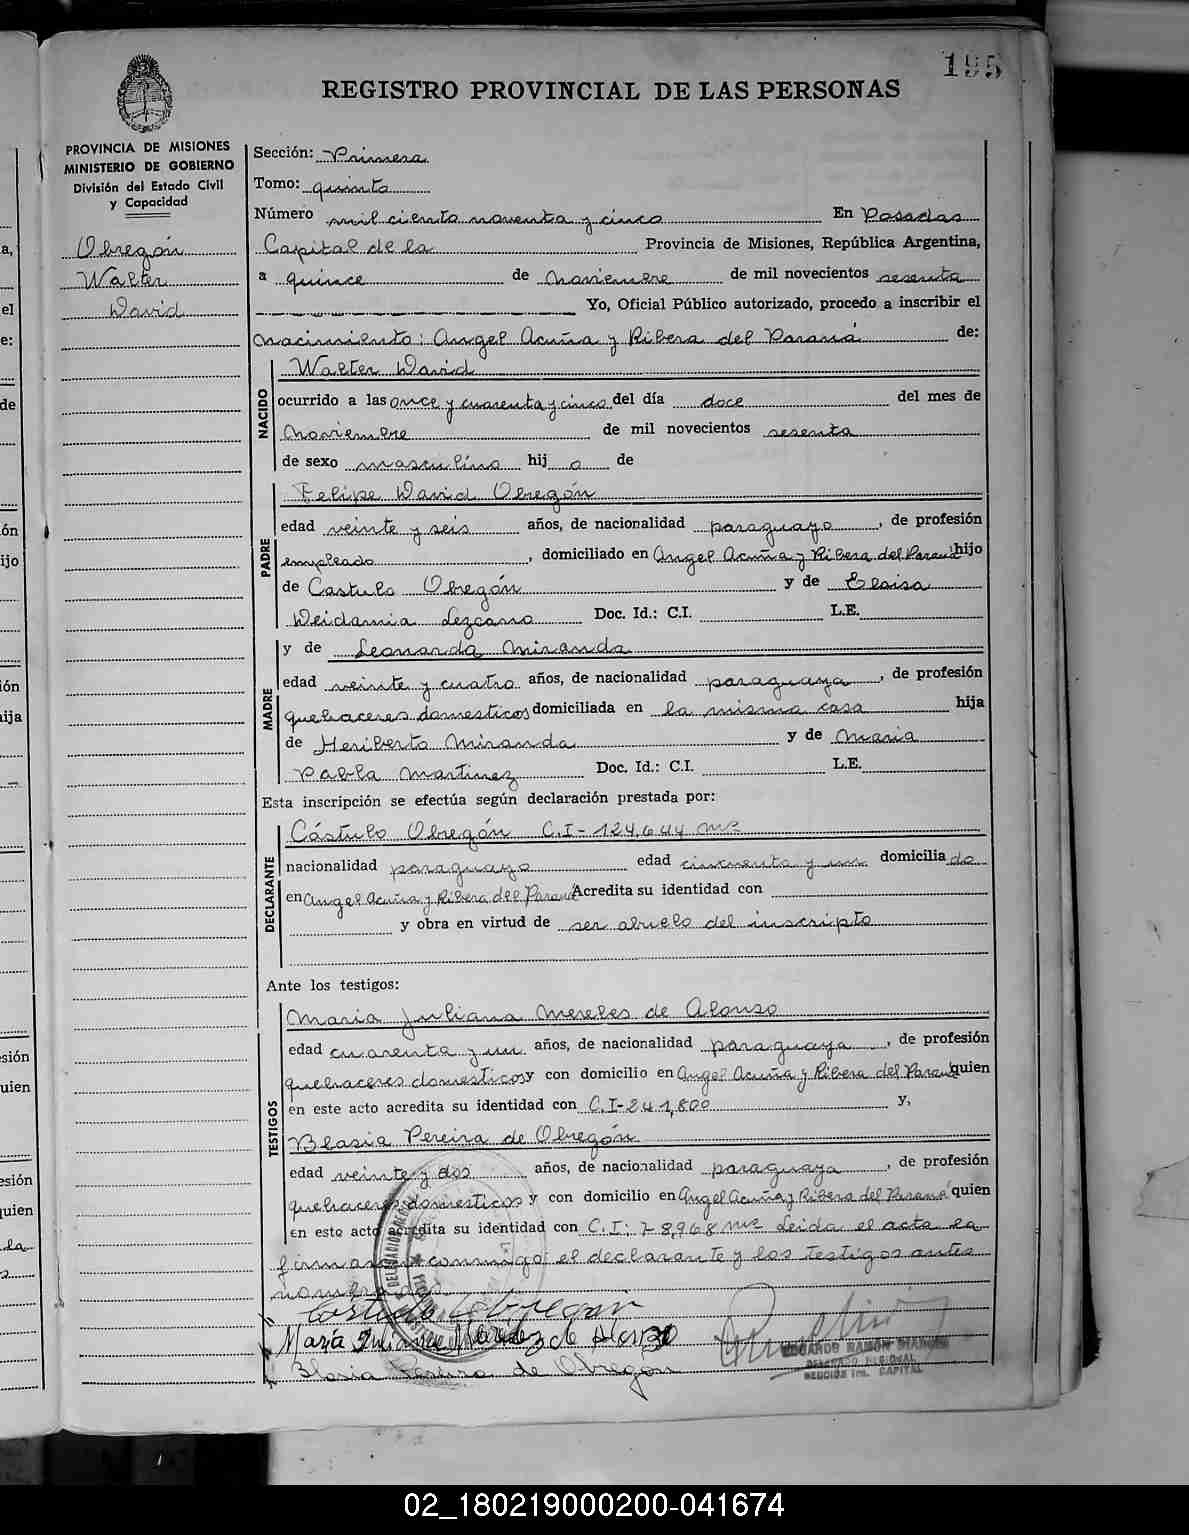 195
REGISTRO PROVINCIAL DE LAS PERSONAS
PROVINCIA DE MISIONES
MINISTERIO DE GOBIERNO
División del Estado Civil
y Capacidad
Obregón
Walter
David
Sección: Primera
Tomo: quinto
Número mil ciento noventa y cinco En Posadas
Capital de la Provincia de Misiones, República Argentina,
a quince de noviembre de mil novecientos sesenta
Yo, Oficial Público autorizado, procedo a inscribir el
nacimiento: Angel Acuña y Ribera del Paraná de:
NACIDO
Walter David
ocurrido a las once y cuarenta y cinco del día doce del mes de
noviembre de mil novecientos sesenta
de sexo masculino hij o de
PADRE
Felipe David Obregón
edad veinte y seis años, de nacionalidad paraguayo, de profesión
empleado, domiciliado en Angel Acuña y Ribera del Paraná hijo
de Castulo Obregón y de Eloisa
Deidamia Lezcano Doc. Id.: C.I. L.E.
MADRE
y de Leonarda Miranda
edad veinte y cuatro años, de nacionalidad paraguaya, de profesión
quehaceres domesticos domiciliada en la misma casa hija
de Heriberto Miranda y de Maria
Pabla Martinez Doc. Id.: C.I. L.E.
Esta inscripción se efectúa según declaración prestada por:
DECLARANTE
Cástulo Obregón C.I- 124.644 Mnes
nacionalidad paraguayo edad cincuenta y un domicilia do
en Angel Acuña y Ribera del Paraná Acredita su identidad con
y obra en virtud de ser abuelo del inscripto
Ante los testigos:
TESTIGOS
Maria Juliana Mereles de Alonso
edad cuarenta y un años, de nacionalidad paraguaya, de profesión
quehaceres domesticos y con domicilio en Angel Acuña y Ribera del Paraná quien
en este acto acredita su identidad con C.I-241,800 y,
Blasia Pereira de Obregón
edad veinte y dos años, de nacionalidad paraguaya, de profesión
quehaceres domesticos y con domicilio en Angel Acuña y Ribera del Paraná quien
en este acto acredita su identidad con C.I: 78,968 Mnes Leida el acta la
firman conmigo el declarante y los testigos antes
nombrados.
Castulo Obregón
María Juliana de Alonso
Blasia Pereira de Obregon
EDUARDO RAMÓN
DELEGADO REGIONAL
SECCION 1ra. CAPITAL
02_180219000200-041674